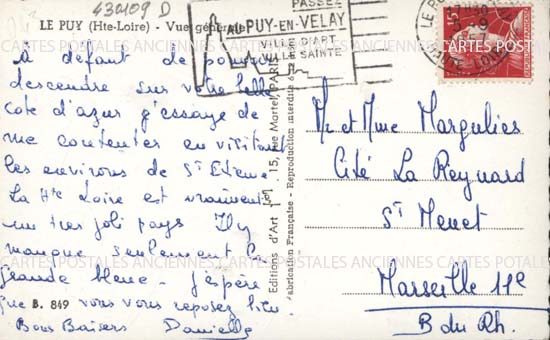 432109 D
LE PUY (Hte-Loire) - Vue générale
PASSEZ
AU PUY-EN-VELAY
VILLE D'ART
VILLE SAINTE
à défaut de pouvoir
descendre sur votre belle
cote d'azur j'essaye de
me contenter en visitant
les environs de St Etienne
La Hte Loire est vraiment
un tres joli pays Il y
manque seulement la
grande bleue. J'espère
que vous vous reposez bien
Bons Baisers Danielle
B. 849
Editions d'Art
15, rue Martel, PARIS
Fabrication Française - Reproduction interdite
Mr et Mme Margulies
Cité La Reynard
St Menet
Marseille 11e
B du Rh.
CARTES POSTALES ANCIENNES